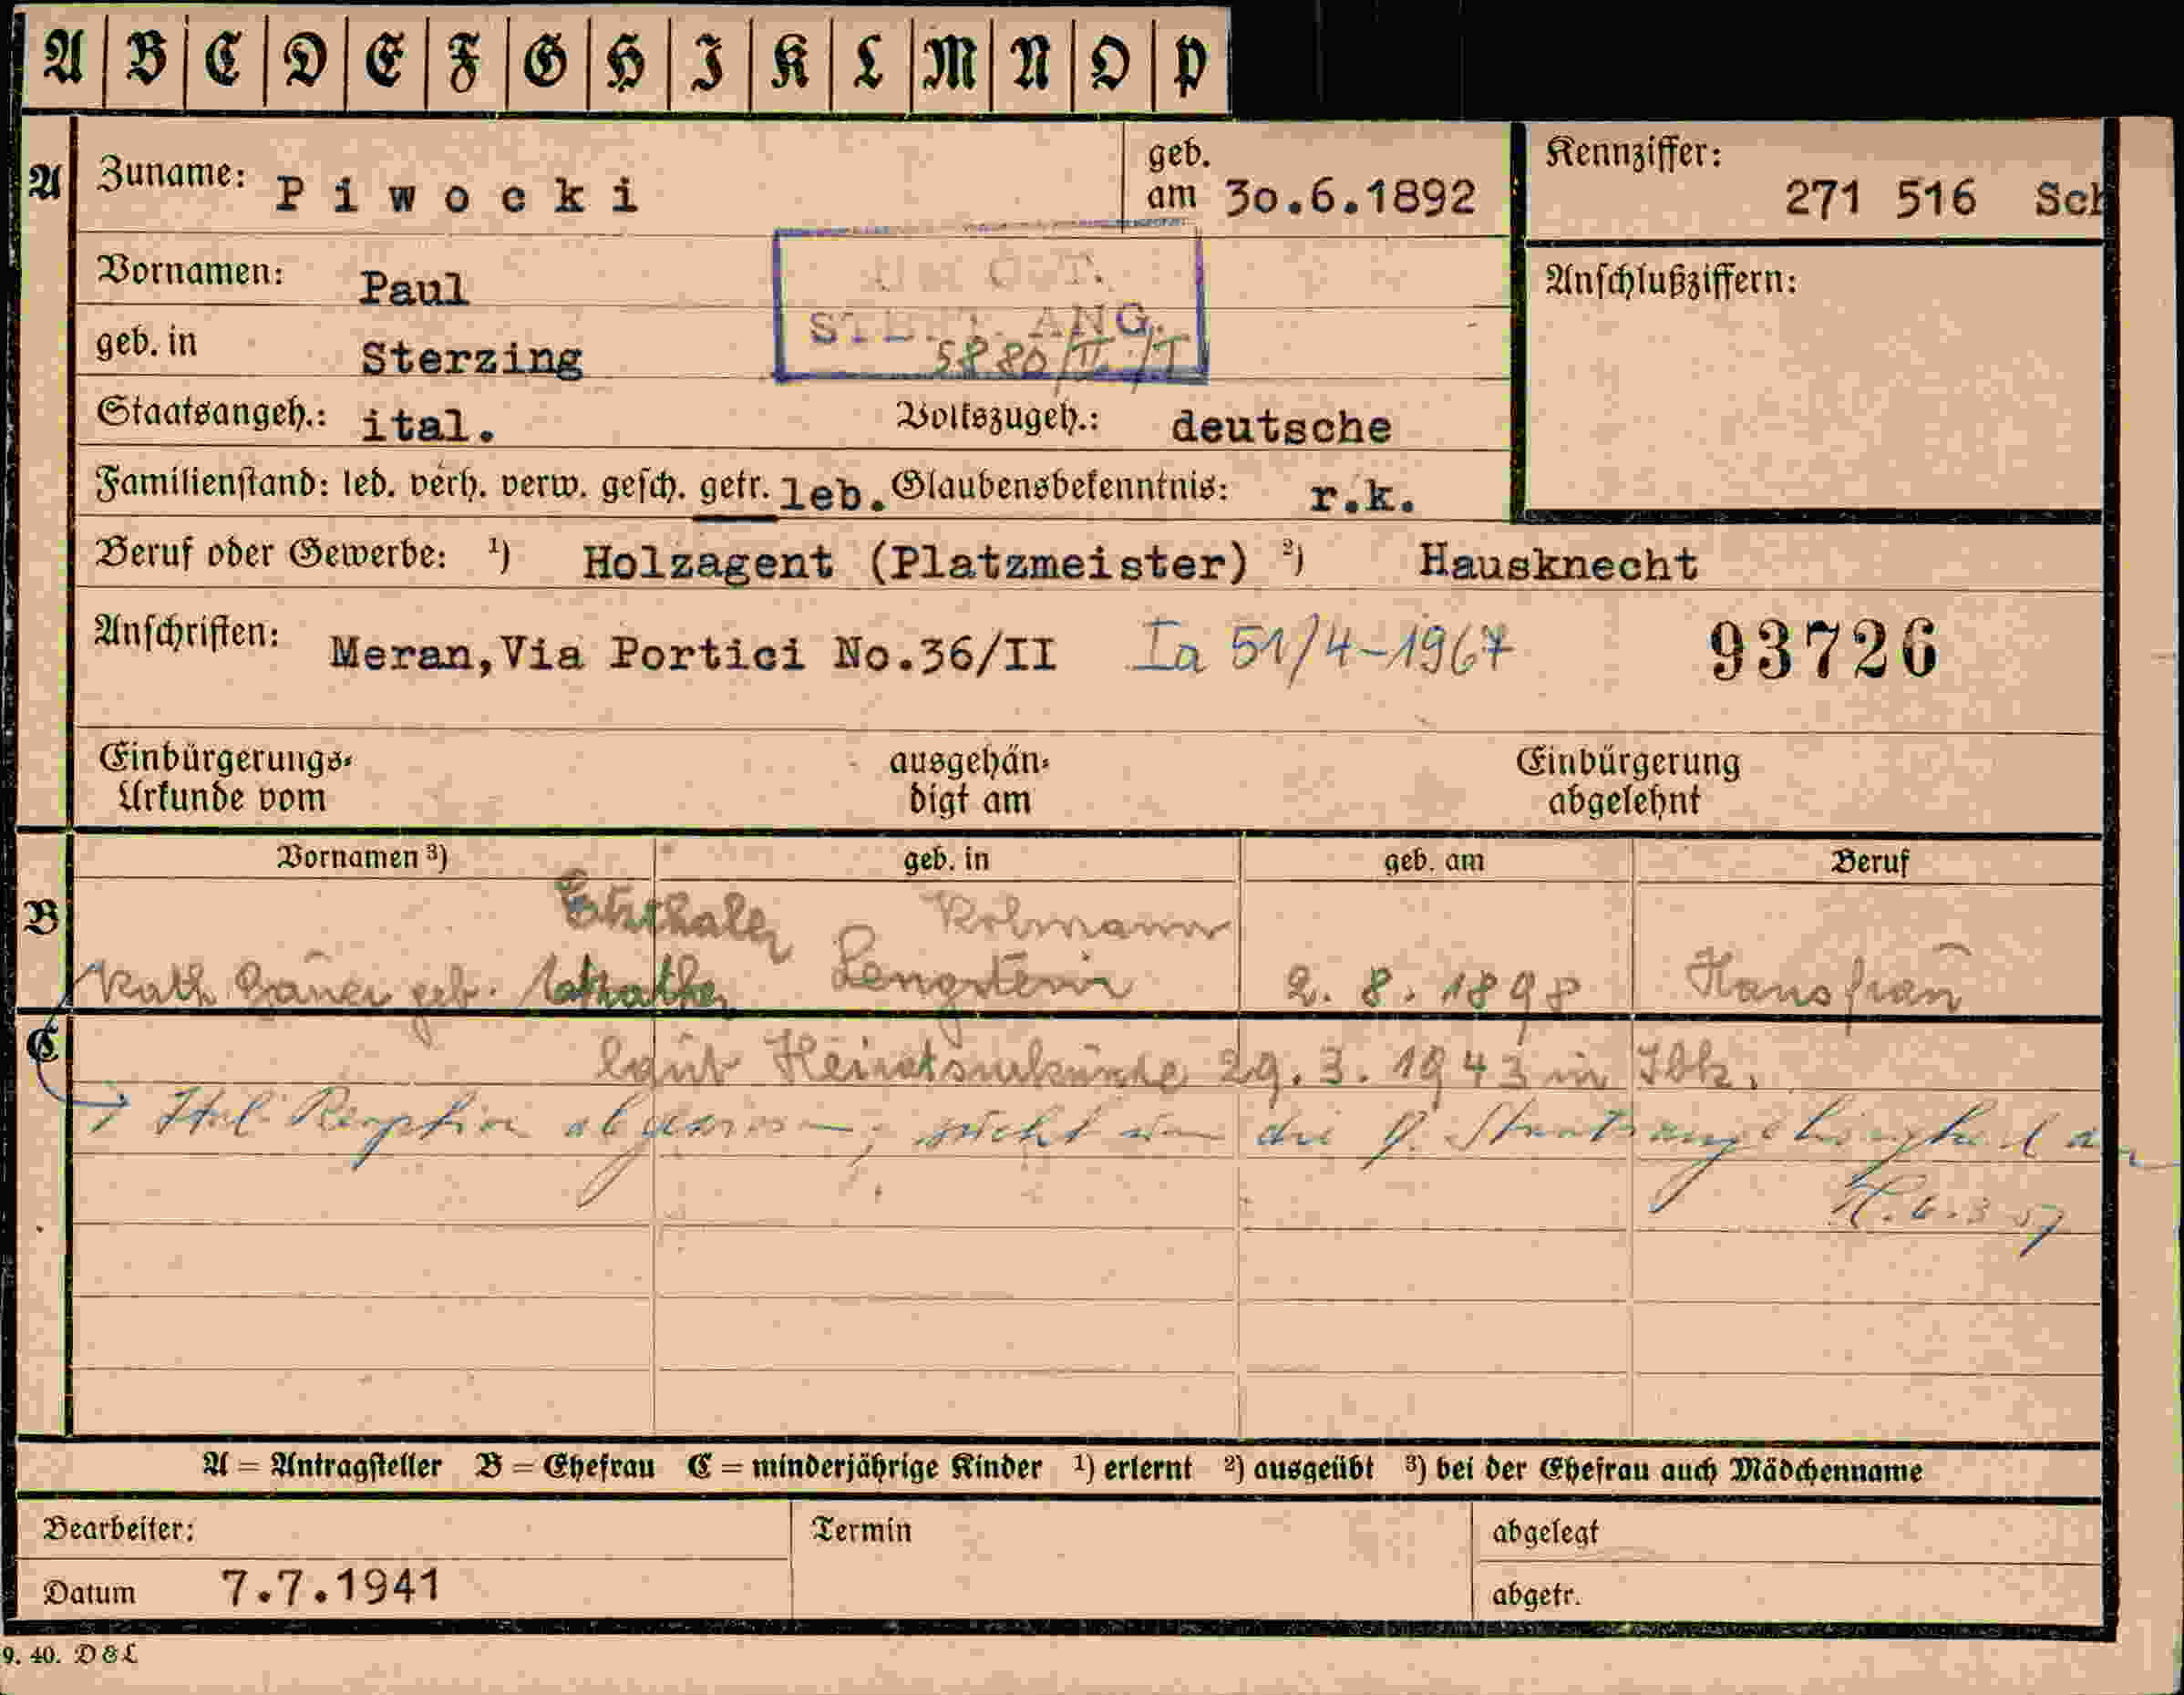 A B C D E F G H I K L M N O P
A Zuname: Piwocki geb. am 30.6.1892 Kennziffer: 271 516 Sch
Vornamen: Paul Anschlußziffern:
geb. in Sterzing 5880/II./I
Staatsangeh.: ital. Volkszugeh.: deutsche
Familienstand: led. verh. verw. gesch. getr. leb. Glaubensbekenntnis: r.k.
Beruf oder Gewerbe: ¹) Holzagent (Platzmeister) ²) Hausknecht
Anschriften: Meran,Via Portici No.36/II Ia 51/4-1967 93726
Einbürgerungs-Urkunde vom ausgehändigt am Einbürgerung abgelehnt
Vornamen ³) geb. in geb. am Beruf
B Kolmann
Kath. geb. Lengstein 2. 8. 1898 Hausfrau
C laut Heiratsurkunde 29. 3. 1943 in Ibk.
Ital. Reoption abgewiesen; sucht um die ö. Staatsangehörigkeit an
6.3.57
A = Antragsteller B = Ehefrau C = minderjährige Kinder ¹) erlernt ²) ausgeübt ³) bei der Ehefrau auch Mädchenname
Bearbeiter: Termin abgelegt
Datum 7.7.1941 abgetr.
9. 40. D&L